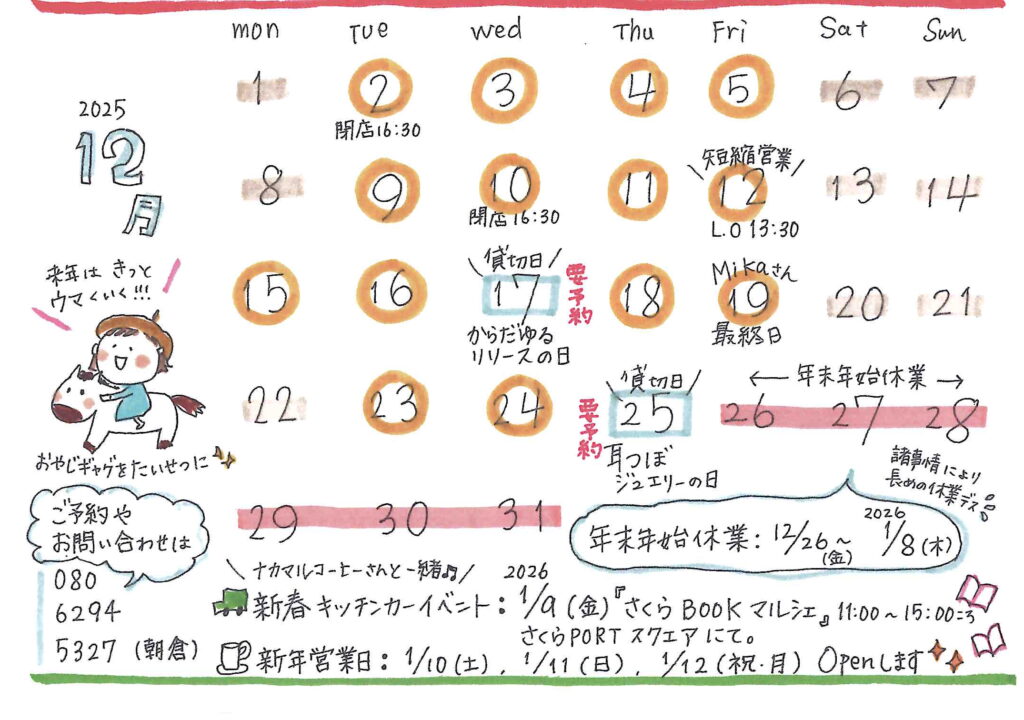 mon Tue wed Thu Fri Sat Sun
2025
12
月
1 2 3 4 5 6 7
閉店16:30
8 9 10 11 12 13 14
閉店16:30
\短縮営業/
L.O 13:30
15 16 17 18 19 20 21
\貸切日/
要予約
からだゆる
リリースの日
Mikaさん
最終日
来年は きっと
ウマくいく!!!
22 23 24 25 26 27 28
\貸切日/
要予約
耳つぼ
ジュエリーの日
← 年末年始休業 →
諸事情により
長めの休業デス
おやじギャグをたいせつに
29 30 31
年末年始休業: 12/26(金)~ 2026 1/8(木)
ご予約や
お問い合わせは
080
6294
5327 (朝倉)
\ナカマルコーヒーさんと一緒♫/
新春キッチンカーイベント: 2026 1/9(金)『さくらBOOKマルシェ』11:00~15:00ごろ
さくらPORTスクエアにて。
新年営業日: 1/10(土), 1/11(日), 1/12(祝・月) Openします